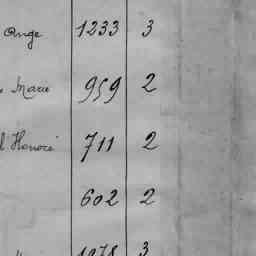 Ange 1233 3
Marie 959 2
Honoré 711 2
602 2
1278 3